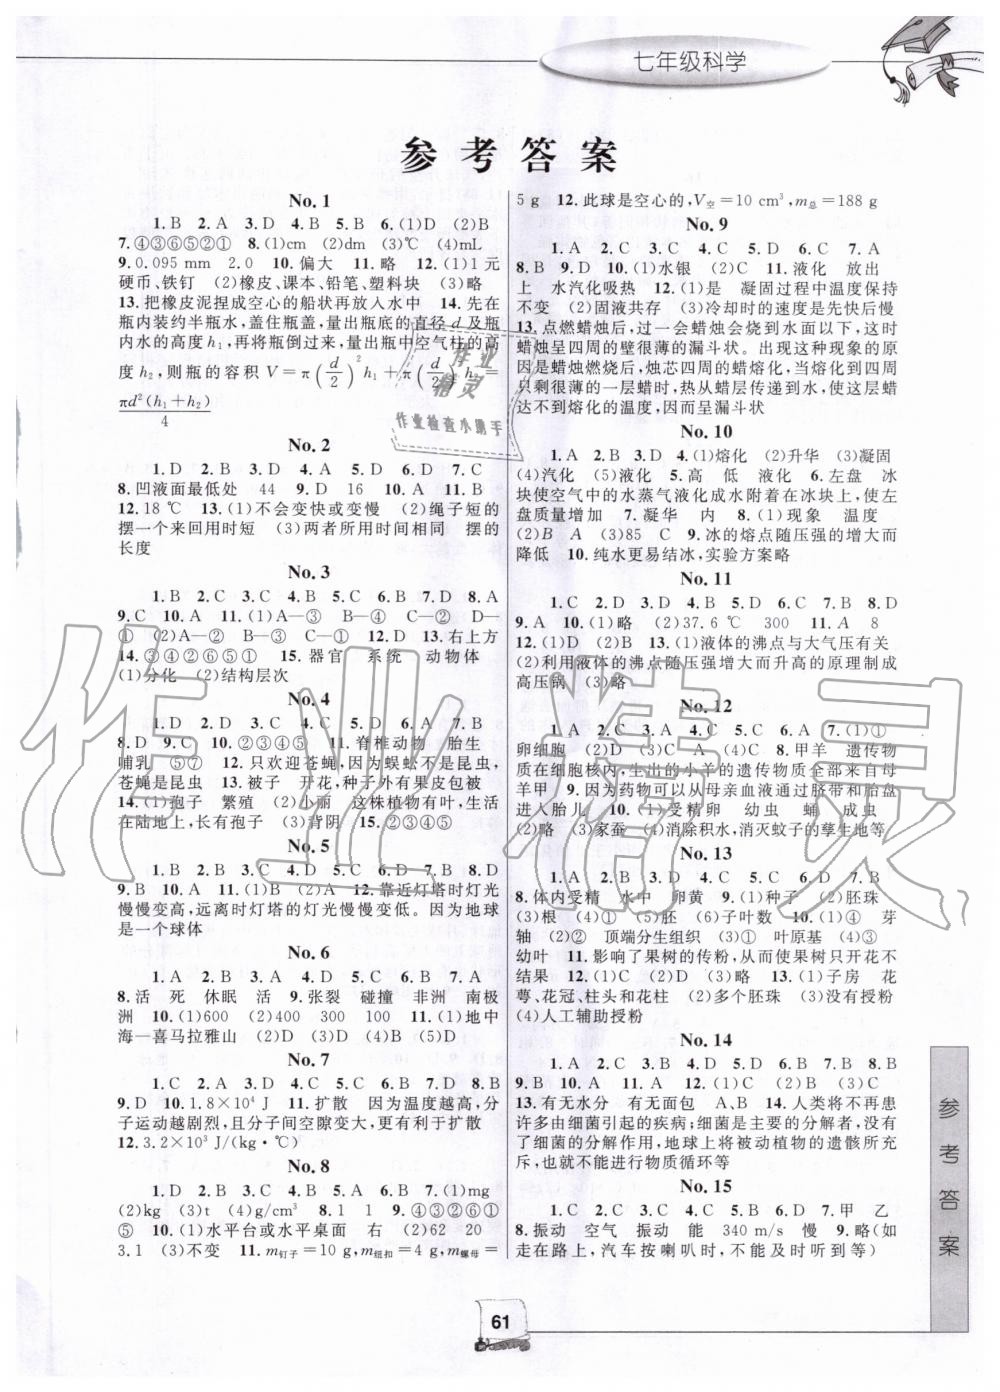 七年级科学
参考答案
No. 1
1. B 2. A 3. D 4. B 5. B 6. (1)D (2)B
7. ④③⑥⑤②① 8. (1)cm (2)dm (3)℃ (4)mL
9. 0.095 mm 2.0 10. 偏大 11. 略 12. (1)1元
硬币、铁钉 (2)橡皮、课本、铅笔、塑料块 (3)略
13. 把橡皮泥捏成空心的船状再放入水中 14. 先在
瓶内装约半瓶水,盖住瓶盖,量出瓶底的直径 d 及瓶
内水的高度 h₁,再将瓶倒过来,量出瓶中空气柱的高
度 h₂,则瓶的容积 V=π(d/2)²h₁+π(d/2)²h₂=
πd²(h₁+h₂)/4
No. 2
1. D 2. B 3. D 4. A 5. D 6. D 7. C
8. 凹液面最低处 44 9. D 16 10. A 11. B
12. 18 ℃ 13. (1)不会变快或变慢 (2)绳子短的
摆一个来回用时短 (3)两者所用时间相同 摆的
长度
No. 3
1. B 2. C 3. C 4. B 5. C 6. B 7. D 8. A
9. C 10. A 11. (1)A—③ B—④ C—② D—
① (2)A—② B—③ C—① 12. D 13. 右上方
14. ③④②⑥⑤① 15. 器官 系统 动物体
(1)分化 (2)结构层次
No. 4
1. D 2. D 3. D 4. B 5. C 6. A 7. B
8. D 9. C 10. ②③④⑤ 11. 脊椎动物 胎生
哺乳 ⑤⑦ 12. 只欢迎苍蝇,因为蜈蚣不是昆虫,
苍蝇是昆虫 13. 被子 开花,种子外有果皮包被
14. (1)孢子 繁殖 (2)小丽 这株植物有叶,生活
在陆地上,长有孢子 (3)背阴 15. ②③④⑤
No. 5
1. B 2. B 3. D 4. C 5. C 6. D 7. B 8. D
9. B 10. A 11. (1)B (2)A 12. 靠近灯塔时灯光
慢慢变高,远离时灯塔的灯光慢慢变低。因为地球
是一个球体
No. 6
1. A 2. B 3. D 4. B 5. A 6. B 7. A
8. 活 死 休眠 活 9. 张裂 碰撞 非洲 南极
洲 10. (1)600 (2)400 300 100 11. (1)地中
海—喜马拉雅山 (2)D (3)D (4)B (5)D
No. 7
1. C 2. C 3. A 4. C 5. B 6. D 7. B 8. B
9. D 10. 1.8×10⁴ J 11. 扩散 因为温度越高,分
子运动越剧烈,且分子间空隙变大,更有利于扩散
12. 3.2×10³ J/(kg·℃)
No. 8
1. D 2. B 3. D 4. B 5. D 6. B 7. (1)mg
(2)kg (3)t (4)g/cm³ 8. 1 1 9. ④③②⑥①
⑤ 10. (1)水平台或水平桌面 右 (2)62 20
3.1 (3)不变 11. m钉子=10 g,m纽扣=4 g,m螺母=
5 g 12. 此球是空心的,V空=10 cm³,m总=188 g
No. 9
1. A 2. C 3. C 4. C 5. D 6. C 7. A
8. B 9. D 10. (1)水银 (2)C 11. 液化 放出
上 水汽化吸热 12. (1)是 凝固过程中温度保持
不变 (2)固液共存 (3)冷却时的速度是先快后慢
13. 点燃蜡烛后,过一会蜡烛会烧到水面以下,这时
蜡烛呈四周的壁很薄的漏斗状。出现这种现象的原
因是蜡烛燃烧后,烛芯四周的蜡熔化,当熔化到四周
只剩很薄的一层蜡时,热从蜡层传递到水,使这层蜡
达不到熔化的温度,因而呈漏斗状
No. 10
1. A 2. D 3. D 4. (1)熔化 (2)升华 (3)凝固
(4)汽化 (5)液化 5. 高 低 液化 6. 左盘 冰
块使空气中的水蒸气液化成水附着在冰块上,使左
盘质量增加 7. 凝华 内 8. (1)现象 温度
(2)B A (3)85 C 9. 冰的熔点随压强的增大而
降低 10. 纯水更易结冰,实验方案略
No. 11
1. C 2. D 3. B 4. D 5. B 6. C 7. B 8. D
9. A 10. (1)略 (2)37.6 ℃ 300 11. A 8
12. (1)D (2)B 13. (1)液体的沸点与大气压有关
(2)利用液体的沸点随压强增大而升高的原理制成
高压锅 (3)略
No. 12
1. D 2. C 3. A 4. C 5. C 6. A 7. (1)①
卵细胞 (2)D (3)C A (4)C 8. 甲羊 遗传物
质在细胞核内,生出的小羊的遗传物质全部来自母
羊甲 9. 因为药物可以从母亲血液通过脐带和胎盘
进入胎儿 10. (1)受精卵 幼虫 蛹 成虫
(2)略 (3)家蚕 (4)消除积水,消灭蚊子的孳生地等
No. 13
1. A 2. B 3. C 4. B 5. D 6. A 7. B
8. 体内受精 水中 卵黄 9. (1)种子 (2)胚珠
(3)根 (4)① (5)胚 (6)子叶数 10. (1)④ 芽
轴 (2)② 顶端分生组织 (3)① 叶原基 (4)③
幼叶 11. 影响了果树的传粉,从而使果树只开花不
结果 12. (1)C (2)D (3)略 13. (1)子房 花
萼、花冠、柱头和花柱 (2)多个胚珠 (3)没有授粉
(4)人工辅助授粉
No. 14
1. A 2. D 3. C 4. D 5. A 6. C 7. B 8. C
9. B 10. A 11. A 12. (1)C (2)B (3)C
13. 有无水分 有无面包 A、B 14. 人类将不再患
许多由细菌引起的疾病;细菌是主要的分解者,没有
了细菌的分解作用,地球上将被动植物的遗骸所充
斥,也就不能进行物质循环等
No. 15
1. C 2. C 3. A 4. B 5. D 6. D 7. 甲 乙
8. 振动 空气 振动 能 340 m/s 慢 9. 略(如
走在路上,汽车按喇叭时,不能及时听到等)
参考答案
61
作业精灵
作业检查小助手
作业精灵